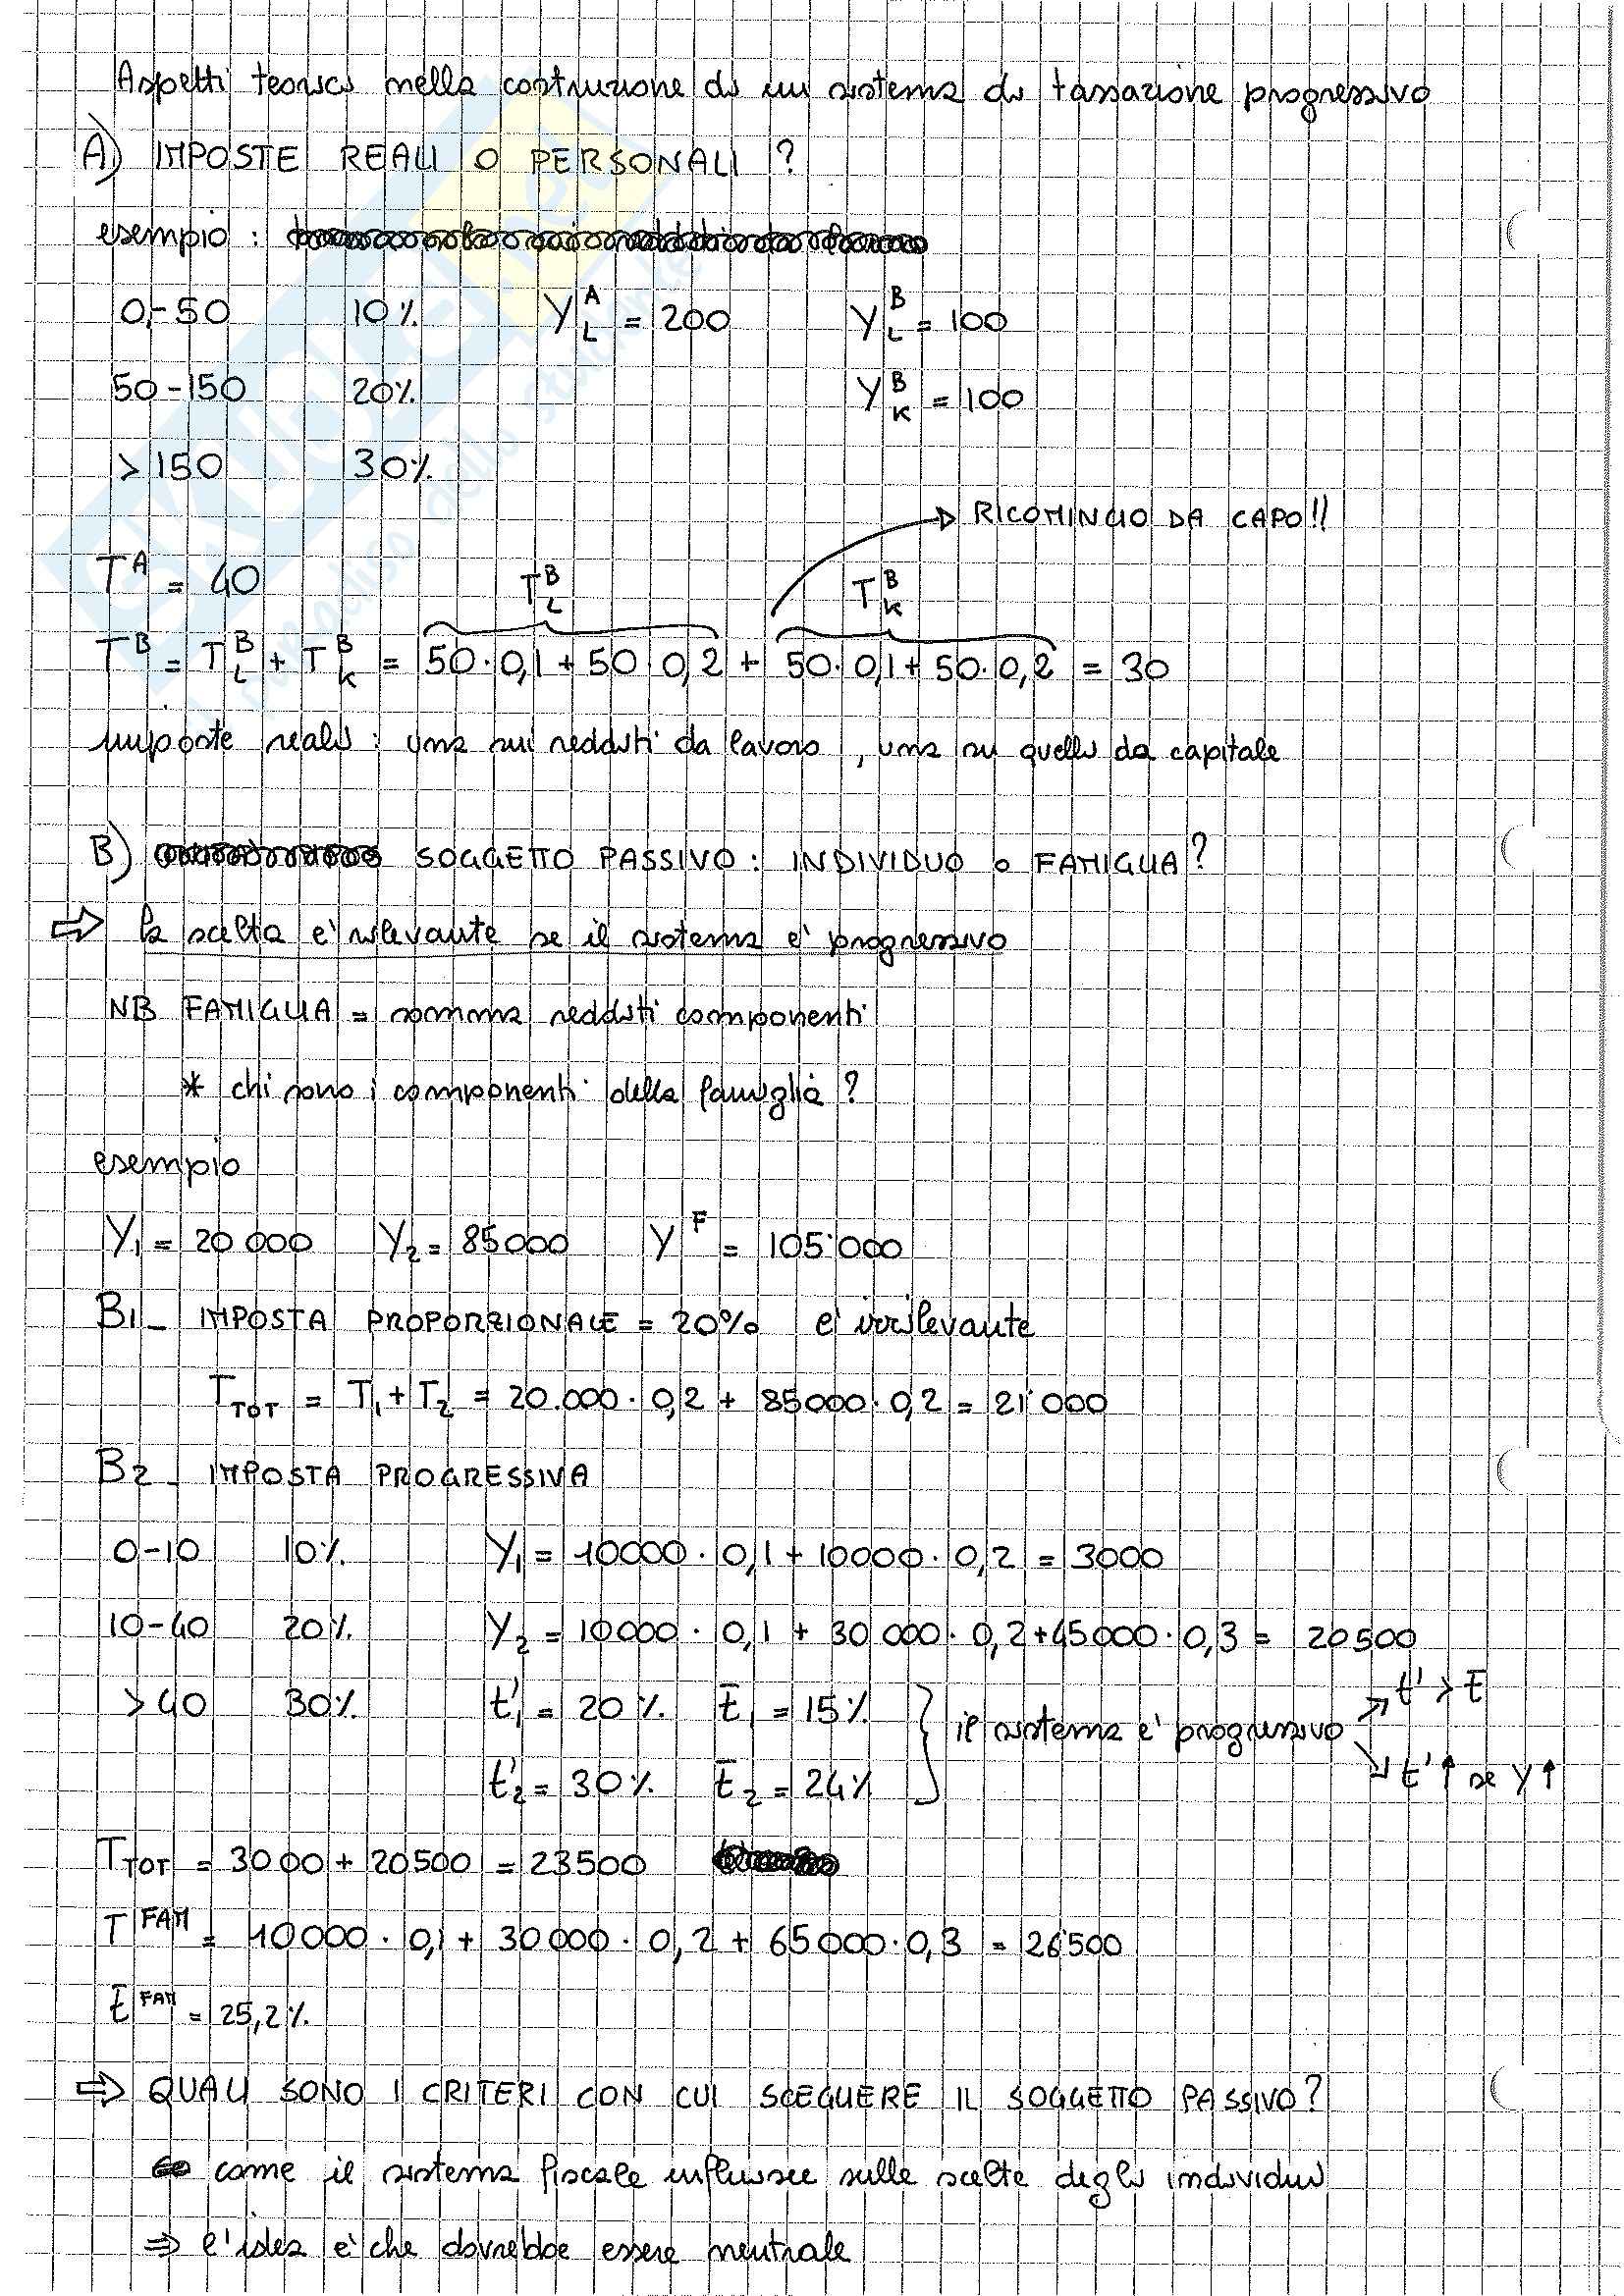 Aspetti teorici nella costruzione di un sistema di tassazione progressivo
A) IMPOSTE REALI O PERSONALI ?
esempio :
0-50 10% Y_L^A = 200 Y_L^B = 100
50-150 20% Y_K^B = 100
> 150 30%
→ RICOMINCIO DA CAPO!!
T^A = 40 T_L^B T_K^B
T^B = T_L^B + T_K^B = 50·0,1 + 50·0,2 + 50·0,1 + 50·0,2 = 30
imposte reali : una sui redditi da lavoro , una su quelli da capitale
B) SOGGETTO PASSIVO : INDIVIDUO o FAMIGLIA?
⇒ la scelta e' rilevante se il sistema e' progressivo
NB FAMIGLIA = somma redditi componenti
* chi sono i componenti della famiglia ?
esempio
Y1 = 20 000 Y2 = 85 000 Y^F = 105'000
B1_ IMPOSTA PROPORZIONALE = 20% e' irrilevante
T_TOT = T1 + T2 = 20.000 · 0,2 + 85000 · 0,2 = 21'000
B2_ IMPOSTA PROGRESSIVA
0-10 10% Y1 = 10000 · 0,1 + 10000 · 0,2 = 3000
10-40 20% Y2 = 10000 · 0,1 + 30 000 · 0,2 + 45000 · 0,3 = 20500
> 40 30% t'1 = 20% t̄1 = 15% } il sistema e' progressivo ↗ t' > t̄
t'2 = 30% t̄2 = 24% ↘ t'↑ se Y↑
T_TOT = 3000 + 20500 = 23500
T^FAM = 10000 · 0,1 + 30000 · 0,2 + 65000 · 0,3 = 26500
t̄^FAM = 25,2%
⇒ QUALI SONO I CRITERI CON CUI SCEGLIERE IL SOGGETTO PASSIVO?
come il sistema fiscale influisce sulle scelte degli individui
⇒ l'idea e' che dovrebbe essere neutrale